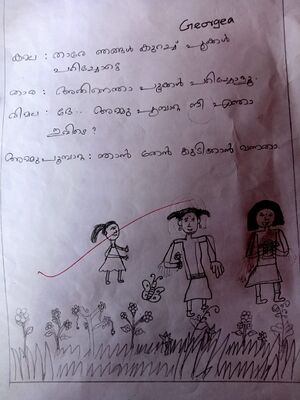 Georgea
കല : താരേ ഞങ്ങൾ കുറച്ച് പൂക്കൾ
പറിച്ചോട്ടെ
താര : അതിനെന്താ പൂക്കൾ പറിച്ചോളൂ.
വിമല : ദേ... അമ്മു പൂമ്പാറ്റ നീ എന്താ
ഇവിടെ ?
അമ്മുപൂമ്പാറ്റ : ഞാൻ തേൻ കുടിക്കാൻ വന്നതാ.